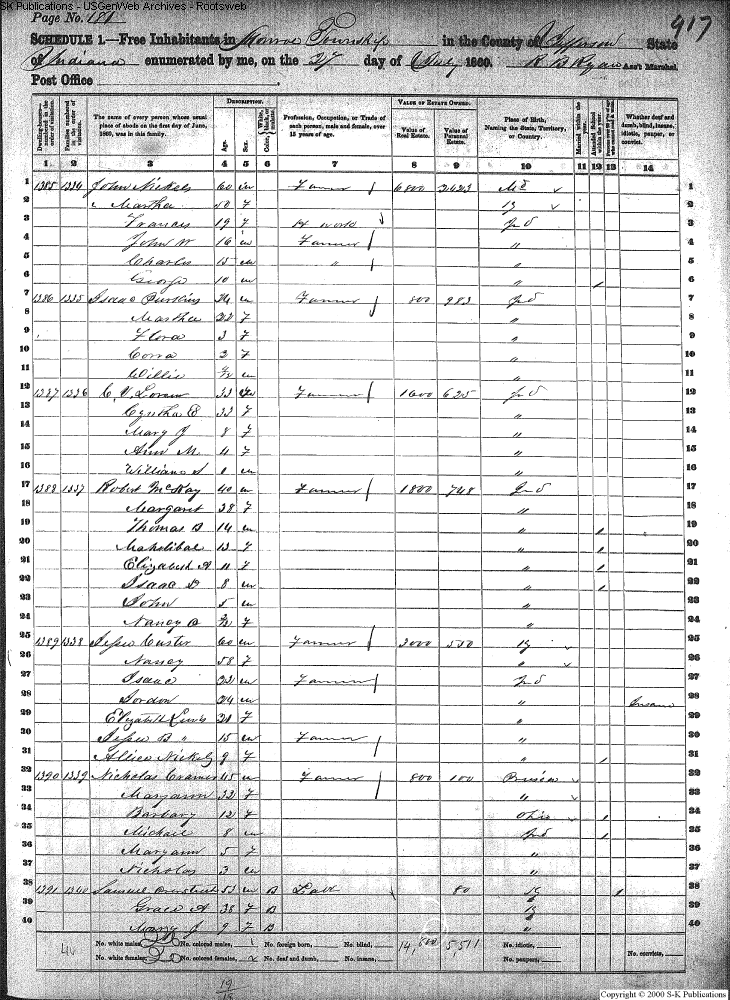 SK Publications - USGenWeb Archives - Rootsweb
Page No. 181
917
SCHEDULE 1.—Free Inhabitants in Monroe Township in the County of Jefferson State
of Indiana enumerated by me, on the 27 day of July 1860. R B Ryan Ass't Marshal.
Post Office
Dwelling-houses—numbered in the order of visitation.
Families numbered in the order of visitation.
The name of every person whose usual place of abode on the first day of June, 1860, was in this family.
DESCRIPTION.
Age.
Sex.
Color, White, black, or mulatto.
Profession, Occupation, or Trade of each person, male and female, over 15 years of age.
VALUE OF ESTATE OWNED.
Value of Real Estate.
Value of Personal Estate.
Place of Birth, Naming the State, Territory, or Country.
Married within the year.
Attended School within the year.
Whether deaf and dumb, blind, insane, idiotic, pauper, or convict.
1 2 3 4 5 6 7 8 9 10 11 12 13 14
1 1385 1334 John Nickels 60 m Farmer 6800 Md 1
2 " Martha 50 f Ky 2
3 Frances 19 f H work Ind 3
4 John W 16 m Farmer " 4
5 Charles 15 m " " 5
6 George 10 m " 6
7 1386 1335 Isaac Burkins 34 m Farmer 800 983 Ind 7
8 Martha 22 f " 8
9 Flora 3 f " 9
10 Corra 2 f " 10
11 Willie m " 11
12 1387 1336 C. V. 33 m Farmer 1600 625 Ind 12
13 Cyntha E 33 f " 13
14 Mary J 8 f " 14
15 Ann M. 4 f " 15
16 William S 1 m " 16
17 1388 1337 Robert McKay 40 m Farmer 1800 748 Ind 17
18 Margaret 38 f " 18
19 Thomas B 14 m " 19
20 13 f " 20
21 Elizabeth A 11 f " 21
22 Isaac D 8 m " 22
23 John 5 m " 23
24 Nancy f " 24
25 1389 1338 Jesse Custer 60 m Farmer 550 Ky 25
26 Nancy 58 f " 26
27 Isaac 22 m Farmer Ind 27
28 Gordon 24 m " Insane 28
29 Elizabeth Lewis 21 f " 29
30 Jesse B " 15 m Farmer " 30
31 Allice Nickels 9 f " 31
32 1390 1339 Nicholas Cramer 45 m Farmer 800 100 32
33 Maryann 32 f " 33
34 Barbary 12 f Ohio 34
35 Michael 8 m Ind 35
36 Maryann 5 f " 36
37 Nicholas 3 m " 37
38 1391 1340 Samuel 53 m B 80 Ky 38
39 Grace A 38 f B Ky 39
40 Mary J 9 f B " 40
No. white males, 20 No. colored males, 1 No. foreign born, No. blind, 14,800 5,511 No. idiotic,
No. white females, No. colored females, 2 No. deaf and dumb, No. insane, No. paupers, No. convicts,
Copyright © 2000 S-K Publications